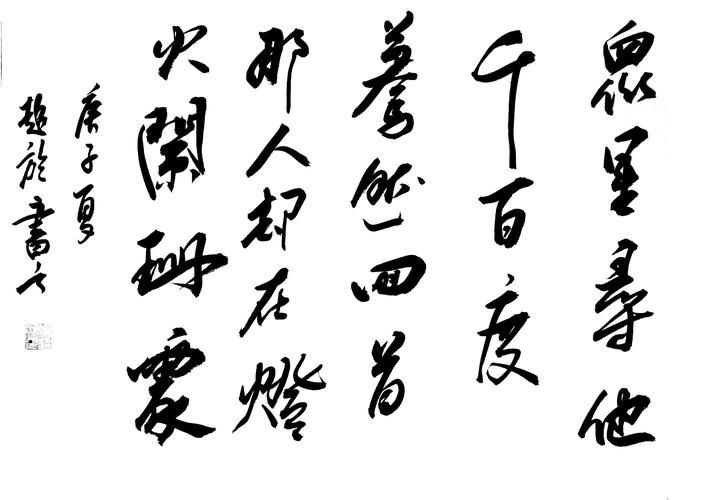 眾里尋他
千百度
驀然回首
那人却在燈
火闌珊處
庚子夏
於書